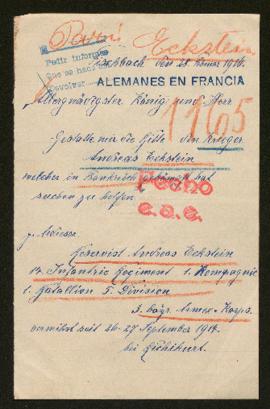 París Eckstein
Pedir informes
Que se haga
Devolver
den 28. 1914.
ALEMANES EN FRANCIA
Allergnädigster König und Herr
1165
Gestatte mir die Bitte den Krieger
Andreas Eckstein
welcher in hat
suchen zu helfen
z. Adresse
Reservist Andreas Eckstein
14. Infantrie Regiment 1. Kompagnie
1. Batallion 5. Division
3. bayr. Armee-Korps.
vermißt seit 26-27 September 1914.
bei